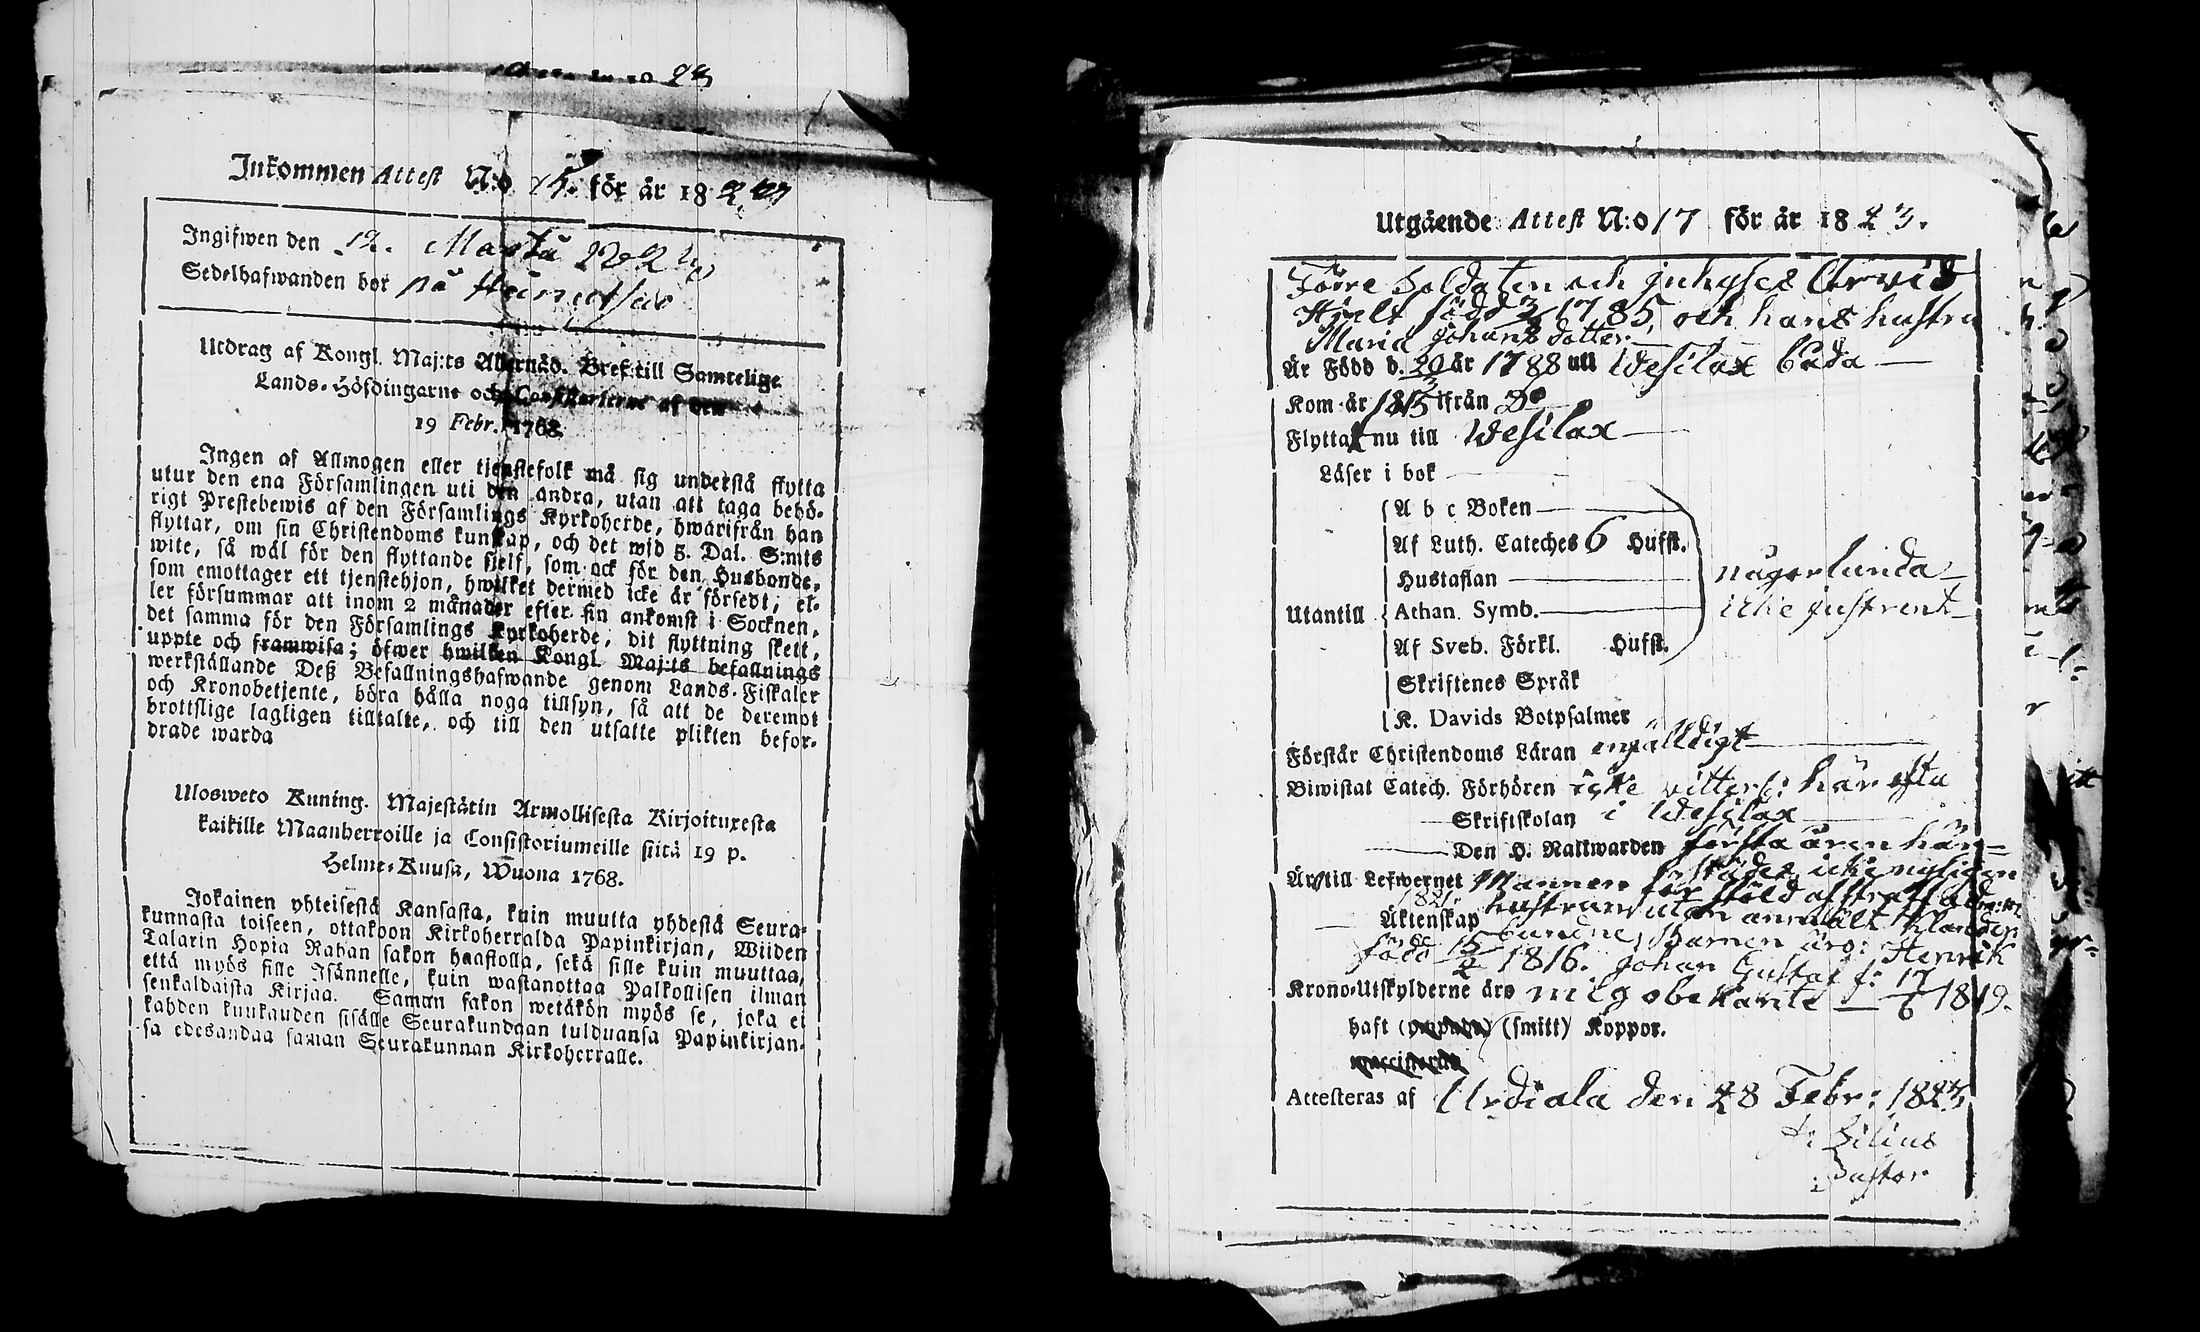 23
Inkommen Attest N:o 15. för år 1823
Ingifwen den 12. Martii 1823
Sedelhafwanden bor på
Utdrag af Kongl. Maj:ts Allernåd. Bref till Samtelige
Lands-Höfdingarne och Consistorierne af den
19 Febr. 1768.
Ingen af Allmogen eller tjenstefolk må sig understå flytta
utur den ena Församlingen uti den andra, utan att taga behö-
rigt Prestebewis af den Församlings Kyrkoherde, hwarifrån han
flyttar, om sin Christendoms kunskap, och det wid 5. Dal. S:mts
wite, så wäl för den flyttande sjelf, som ock för den Husbonde,
som emottager ett tjenstehjon, hwilket dermed icke är försedt; el-
ler försummar att inom 2 månader efter sin ankomst i Socknen,
det samma för den Församlings Kyrkoherde, dit flyttning skett,
uppte och framwisa; öfwer hwilken Kongl. Maj:ts befallnings
werkställande Deß Befallningshafwande genom Lands-Fiskaler
och Kronobetjente, böra hålla noga tillsyn, så att de deremot
brottslige lagligen tilltalte, och till den utsatte plikten befor-
drade warda
Ulosweto Kuning. Majestätin Armollisesta Kirjoituxesta
kaikille Maanherroille ja Consistoriumeille siitä 19 p.
Helme-Kuusa, Wuona 1768.
Jokainen yhteisestä Kansasta, kuin muutta yhdestä Seura-
kunnasta toiseen, ottakoon Kirkoherralda Papinkirjan, Wiiden
Talarin Hopia Rahan sakon haastolla, sekä sille kuin muuttaa,
että myös sille Isännelle, kuin wastanottaa Palkollisen ilman
senkaldaista Kirjaa. Saman sakon wetäkön myös se, joka ei
kahden kuukauden sisälle Seurakundaan tulduansa Papinkirjan-
sa edesandaa saman Seurakunnan Kirkoherralle.
Utgående Attest N:o 17 för år 1823.
Förre Soldaten och Inhyses Arvid
Hjelt född 1785, och hans hustru
Maria Johansdotter
Är Född d. 20/3 år 1788 uti Wesilax båda
Kom år 1815 ifrån Do
Flyttar nu till Wesilax
Läser i bok
A b c Boken
Af Luth. Cateches 6 Hufst.
Hustaflan någorlunda
Utantill Athan. Symb. icke
Af Sveb. Förkl. Hufst.
Skriftenes Språk
K. Davids Botpsalmer
Förstår Christendoms Läran enfalldigt
Biwistat Catech. Förhören icke här ofta
Skriftskolan i Wesilax
Den H. Nattwarden första åren här
Är till Lefwernet Mannen för stöld afstraffad
1821 hustrun utan anmält klander
Äktenskap Barnen äro: Henrik
född 15/2 1816. Johan Gustaf f: 17/6 1819.
Krono-Utskylderne äro mig obekante
haft (smitt) Koppor.
Attesteras af Urdiala den 28 Febr: 1823
Pastor